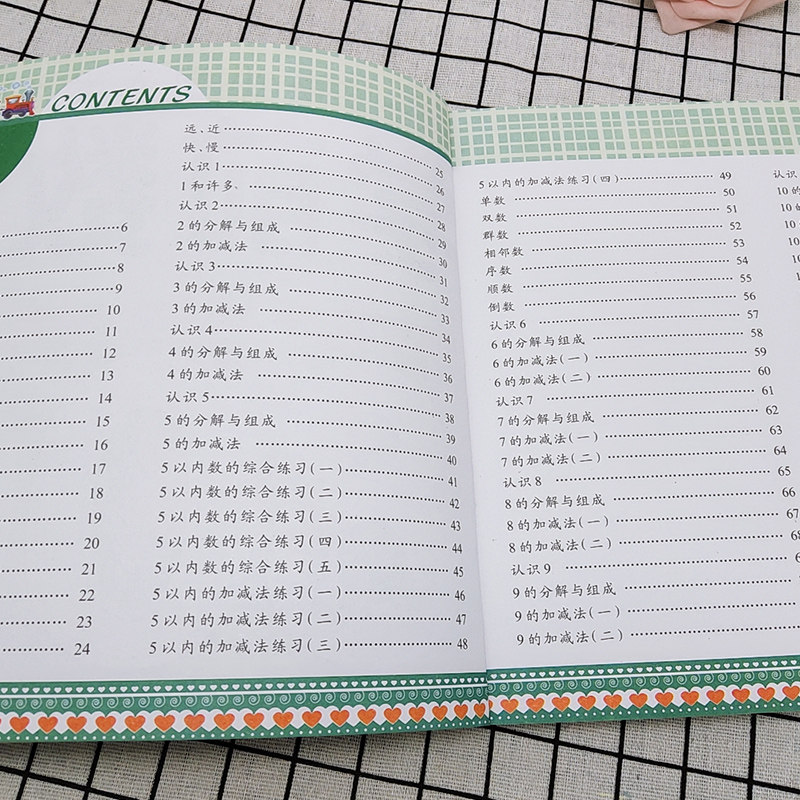 CONTENTS
6
7
8
9
10
11
12
13
14
15
16
17
18
19
20
21
22
23
24
远、近 25
快、慢 26
认识1 27
1和许多 28
认识2 29
2的分解与组成 30
2的加减法 31
认识3 32
3的分解与组成 33
3的加减法 34
认识4 35
4的分解与组成 36
4的加减法 37
认识5 38
5的分解与组成 39
5的加减法 40
5以内数的综合练习(一) 41
5以内数的综合练习(二) 42
5以内数的综合练习(三) 43
5以内数的综合练习(四) 44
5以内数的综合练习(五) 45
5以内的加减法练习(一) 46
5以内的加减法练习(二) 47
5以内的加减法练习(三) 48
5以内的加减法练习(四) 49
单数 50
双数 51
群数 52
相邻数 53
序数 54
顺数 55
倒数 56
认识6 57
6的分解与组成 58
6的加减法(一) 59
6的加减法(二) 60
认识7 61
7的分解与组成 62
7的加减法(一) 63
7的加减法(二) 64
认识8 65
8的分解与组成 66
8的加减法(一) 67
8的加减法(二) 68
认识9
9的分解与组成
9的加减法(一)
9的加减法(二)
认识
10的
10的
10
10